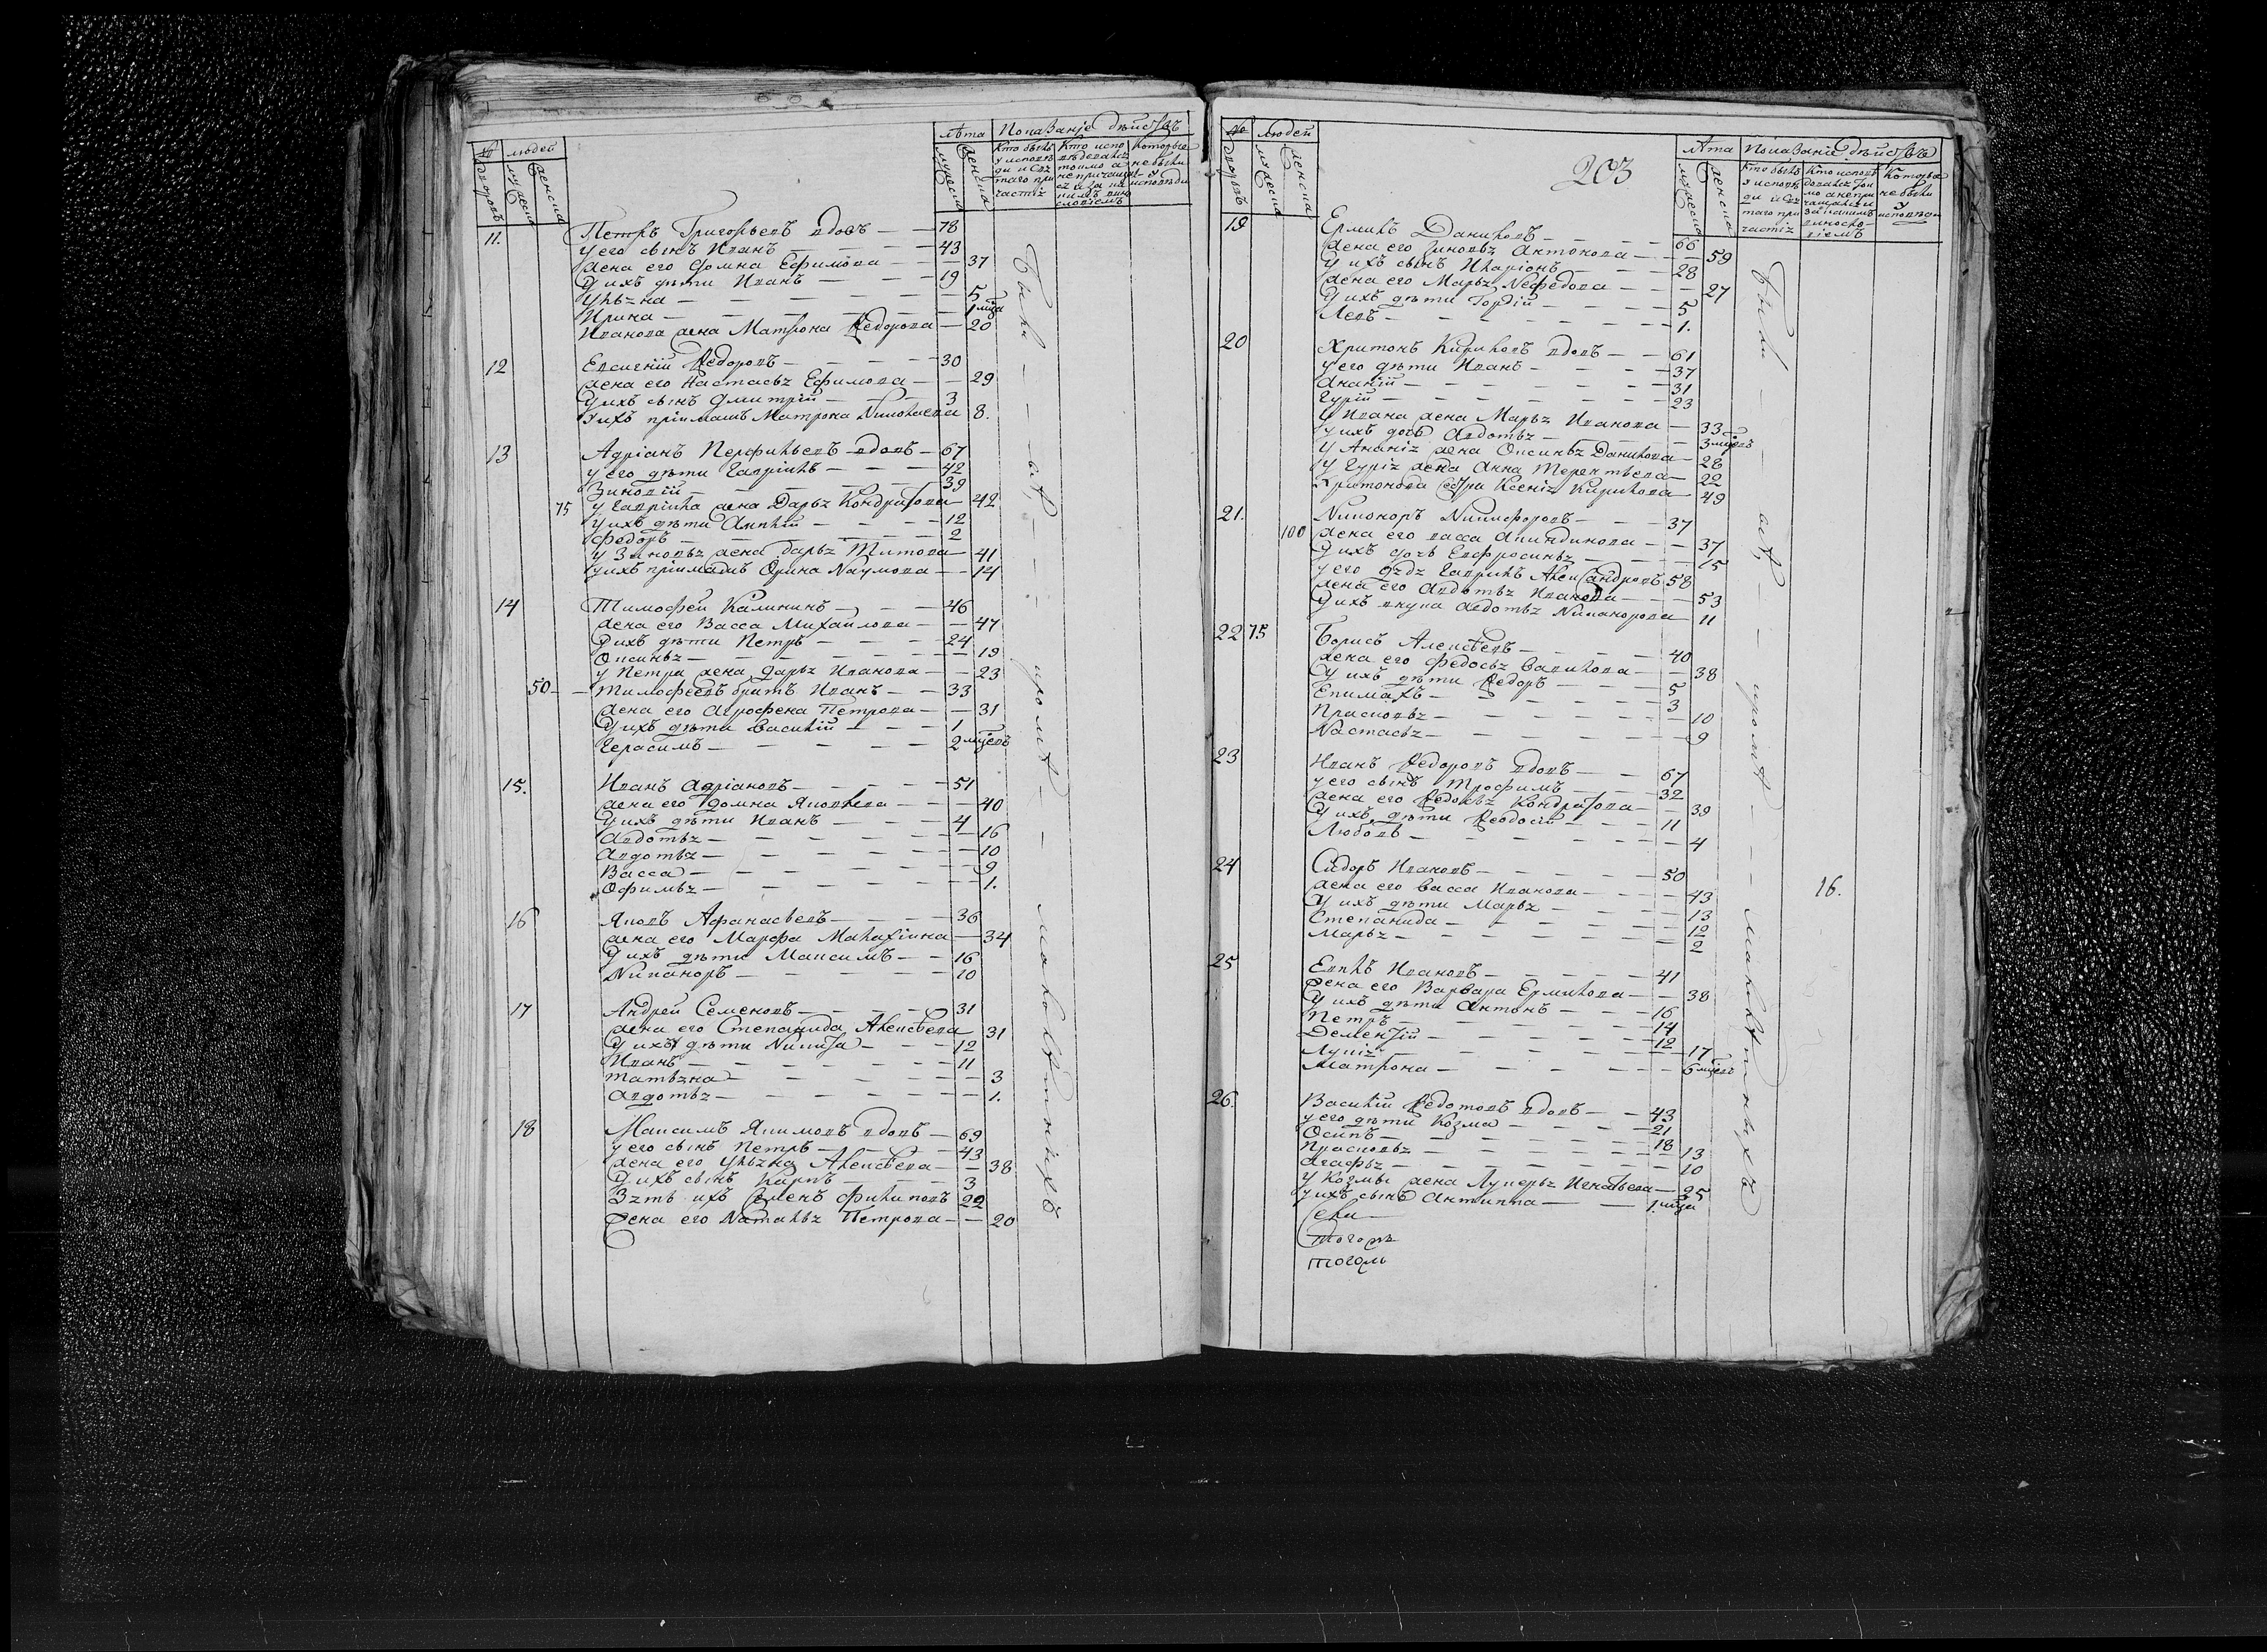 № дворовъ
людей
мужеска
женска
лѣта
мужеска
женска
Показанїе дѣйствъ
Кто были у исповѣди и святаго причастїя
Кто исповѣдовался токмо а не причащался и за какимъ винословїемъ
Которые не были у исповѣди
11. Петръ Григорьевъ вдовъ — — 78
у его сынъ Иванъ — — — 43
жена его Домна Ефимова — — 37
у ихъ дѣти Иванъ — — — 19
Ульяна — — — — — 5
Ирина — — — — — 1 мца
Иванова жена Матрона Ѳедорова — 20
12 Евсигній Ѳедоровъ — — — — 30
жена его Настасья Ефимова — — 29
у ихъ сынъ Дмитрій — — — 3
у ихъ прїмашъ Матрона Николаева 8.
13 Адріанъ Перфильевъ вдовъ — 67
у его дѣти Гавріилъ — — — 42
Зиновій — — — — — 39
75 у Гавріила жена Дарья Кондратова — 42
у ихъ дѣти Аникій — — — 12
Федоръ — — — — — 2
у Зиновья жена Дарья Титова — 41
у ихъ прїмашъ Орина Наумова — — 14
14 Тимофей Калининъ — — — 46
жена его Васса Михайлова — — 47
у ихъ дѣти Петръ — — — 24
Оксинья — — — — — 19
у Петра жена Дарья Иванова — — 23
50 — — Тимофеевъ братъ Иванъ — — 33
жена его Агрофена Петрова — — 31
у ихъ дѣти Василій — — — 1
Герасимъ — — — — — 2 мцевъ
15. Иванъ Адріановъ — — — — 51
жена его Домна Яковлева — — — 40
у ихъ дѣти Иванъ — — — 4
Авдотья — — — — — 16
Авдотья — — — — — 10
Васса — — — — — 9
Офимья — — — — — 1.
16 Яковъ Афанасьевъ — — — — 36
жена его Марфа Малахіина — 34
у ихъ дѣти Максимъ — — 16
Никаноръ — — — — — 10
17 Андрей Семеновъ — — — — 31
жена его Степанида Алексѣева 31
у ихъ дѣти Никита — — — 12
Иванъ — — — — — 11
Татьяна — — — — — 3
Авдотья — — — — — 1.
18 Максимъ Якимовъ вдовъ — 69
у его сынъ Петръ — — — 43
жена его Ульяна Алексѣева — — 38
у ихъ сынъ Карпъ — — — 3
Зять ихъ Семенъ Филиповъ 22
жена его Наталья Петрова — — 20
Были — — а — — промѣ — — малолѣтнихъ
203
№ дворовъ
людей
мужеска
женска
лѣта
мужеска
женска
Показаніе дѣйствъ
Кто были у исповѣди и святаго причастія
Кто исповѣдовался токмо а не причащался и за какимъ винословіемъ
Которые не были у исповѣди
19 Ермилъ Даниловъ — — — 66
жена его Зиновья Антонова — — 59
у ихъ сынъ Иларіонъ — — — 28
жена его Марья Нефедова — — — 27
у ихъ дѣти Гордій — — — 5
Левъ — — — — — 1.
20 Хритонъ Кириловъ вдовъ — — 61
у его дѣти Иванъ — — — 37
Ананій — — — — — 31
Гурій — — — — — 23
у Ивана жена Марья Иванова — 33
у ихъ дочь Авдотья — — — 3 мцевъ
у Ананія жена Оксинья Данилова — 28
у Гурія жена Анна Терентьева — 22
Хритонова сестра Ксенія Кирилова — 49
21. Никоноръ Никифоровъ — — — 37
100 жена его Васса Акиндинова — — 37
у ихъ дочь Евфросинья — — — 15
у его дядя Гаврилъ Александровъ 58
жена его Авдотья Иванова — — 53
у ихъ внука Авдотья Никанорова 11
22 75 Борисъ Алексѣевъ — — — — 40
жена его Федосья Савилова — — 38
у ихъ дѣти Ѳедоръ — — — 5
Епимахъ — — — — — 3
Прасковья — — — — — 10
Настасья — — — — — 9
23 Иванъ Ѳедоровъ вдовъ — — 67
у его сынъ Трофимъ — — — 32
жена его Ѳедосья Кондратова — 39
у ихъ дѣти Ѳеодосій — — — 11
Любовь — — — — — 4
24 Сидоръ Ивановъ — — — — 50
жена его Васса Иванова — — — 43
у ихъ дѣти Марья — — — 13
Степанида — — — — — 12
Марья — — — — — 2
25 Евплъ Ивановъ — — — — 41
жена его Варвара Ермилова — — 38
у ихъ дѣти Антонъ — — — 16
Петръ — — — — — 14
Дементій — — — — — 12
Лукія — — — — — 17
Матрона — — — — — 6 мцевъ
26. Василій Ѳедотовъ вдовъ — — 43
у его дѣти Козма — — — 21
Осипъ — — — — — 18
Прасковья — — — — — 13
Агафья — — — — — 10
у Козмы жена Лукерья Игнатьева — 25
у ихъ сынъ Антипа — — 1. мца
Села
Были — — а — — промѣ — — малолѣтнихъ
16.